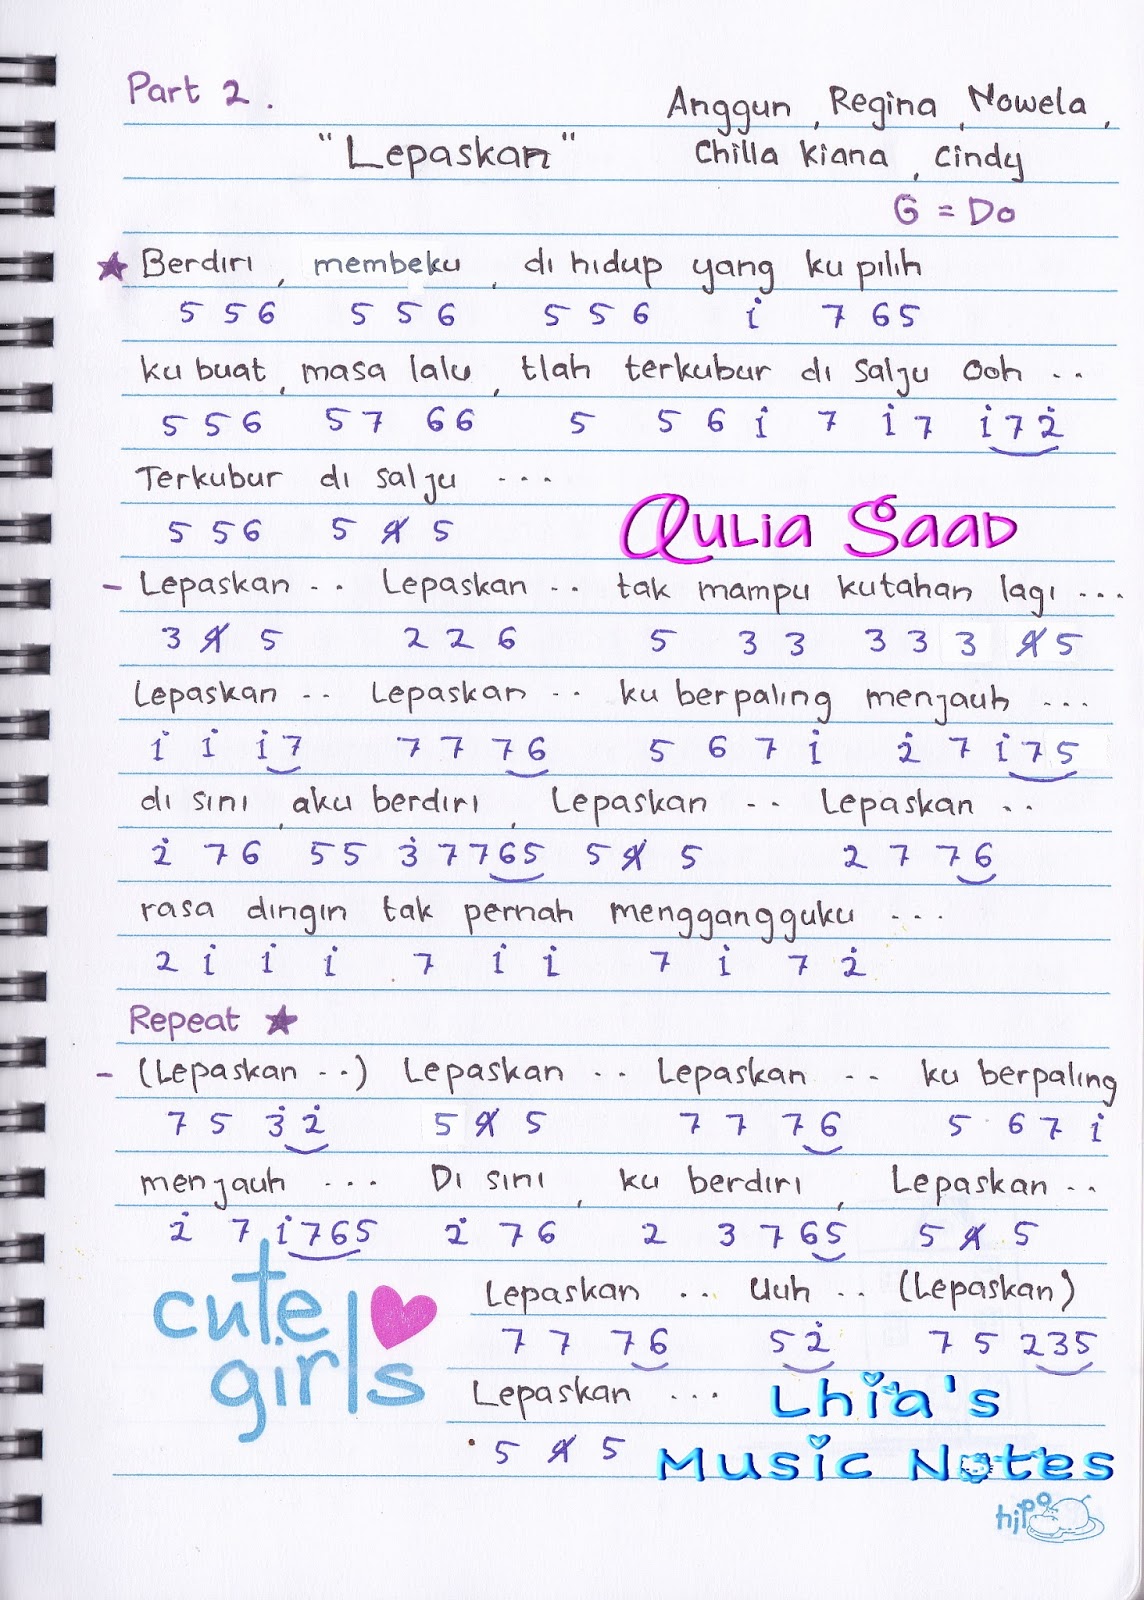 Part 2.
Anggun, Regina, Nowela,
"Lepaskan" Chilla Kiana, Cindy
G = Do
★ Berdiri, membeku, di hidup yang ku pilih
5 5 6 5 5 6 5 5 6 i 7 6 5
ku buat, masa lalu, tlah terkubur di salju Ooh ..
5 5 6 5 7 6 6 5 5 6 i 7 i 7 i 7 2̇
Terkubur di salju ...
5 5 6 5 4̸ 5
Qulia Saad
- Lepaskan .. Lepaskan .. tak mampu kutahan lagi ...
3 4̸ 5 2 2 6 5 3 3 3 3 3 4̸ 5
Lepaskan .. Lepaskan .. ku berpaling menjauh ...
i i i 7 7 7 7 6 5 6 7 i 2̇ 7 i 7 5
di sini, aku berdiri, Lepaskan .. Lepaskan ..
2̇ 7 6 5 5 3̇ 7 7 6 5 5 4̸ 5 2 7 7 6
rasa dingin tak pernah menggangguku ...
2 i i i 7 i i 7 i 7 2̇
Repeat ★
- (Lepaskan ..) Lepaskan .. Lepaskan .. ku berpaling
7 5 3̇ 2̇ 5 4̸ 5 7 7 7 6 5 6 7 i
menjauh ... Di sini, ku berdiri, Lepaskan ..
2̇ 7 i 7 6 5 2̇ 7 6 2 3 7 6 5 5 4̸ 5
cute girls
Lepaskan .. Uuh .. (Lepaskan)
7 7 7 6 5 2̇ 7 5 2 3 5
Lepaskan ...
5 4̸ 5
Lhia's
Music Notes
hipo